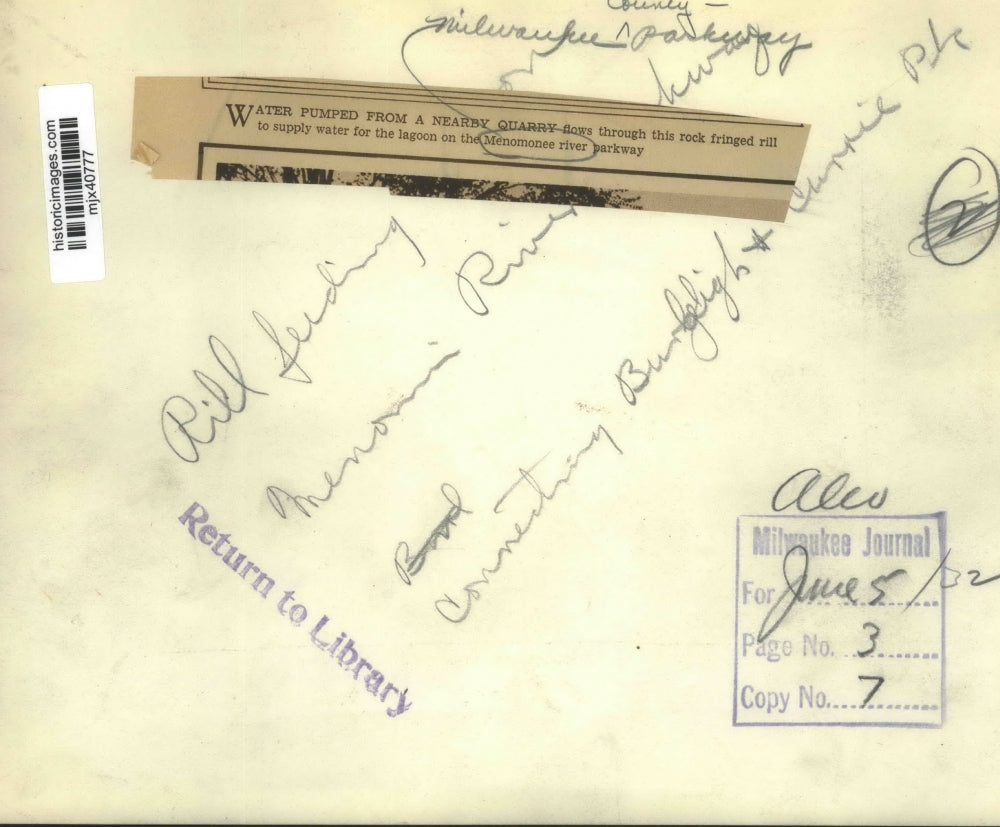 County -
Milwaukee ^ Parkway
on
kway
WATER PUMPED FROM A NEARBY QUARRY flows through this rock fringed rill
to supply water for the lagoon on the Menomonee river parkway
historicimages.com
mjx40777
2
Rill feeding
Menomini River
Connecting Burleigh * Currie Pk
Return to Library
Also
Milwaukee Journal
For June 5/32
Page No. 3
Copy No. 7